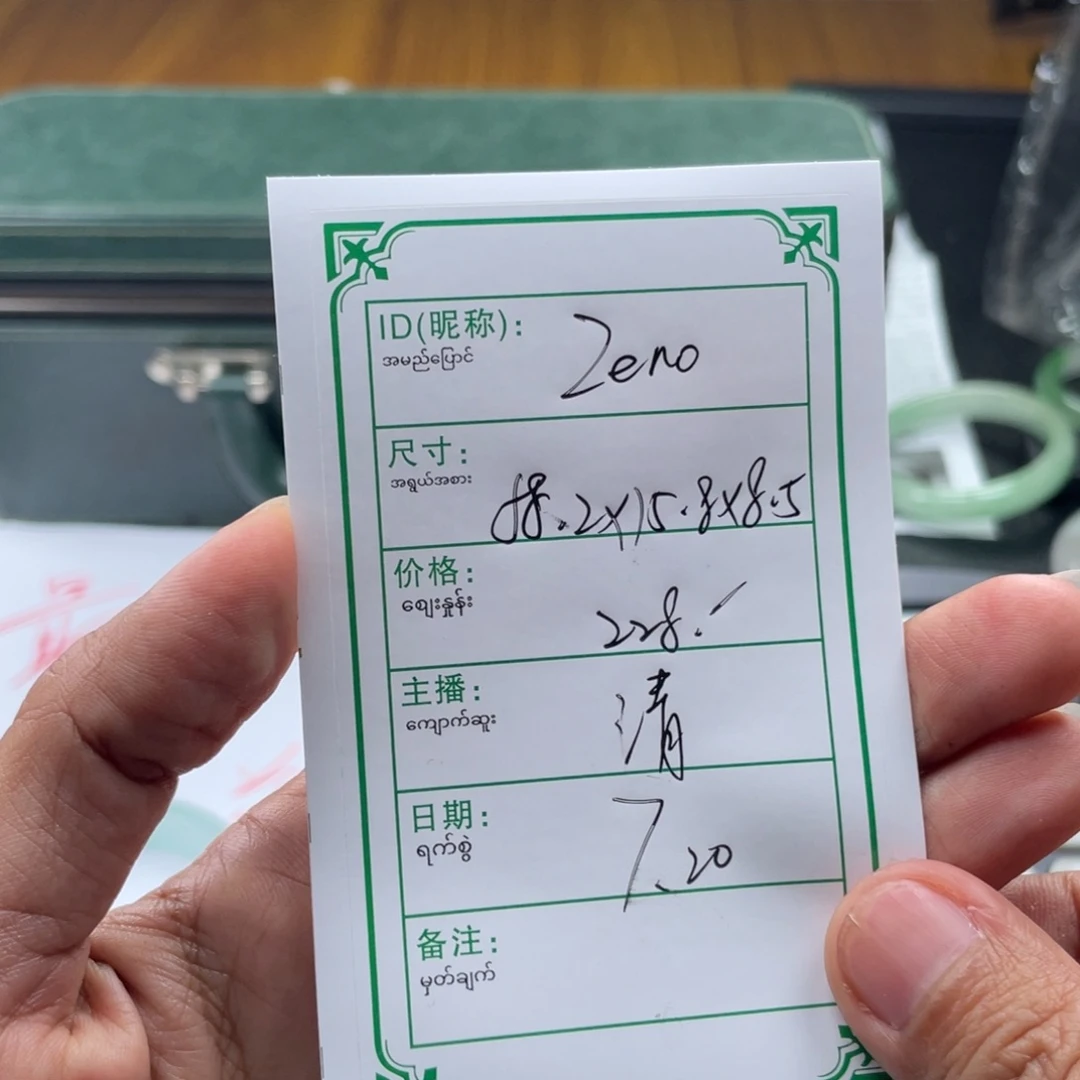 ID(昵称): Zeno
အမည်ပြောင်
尺寸:
အရွယ်အစား
58.2X15.8X8.5
价格:
ဈေးနှုန်း
228.
主播: 清
ကျောက်ဆူး
日期:
ရက်စွဲ
7.20
备注:
မှတ်ချက်